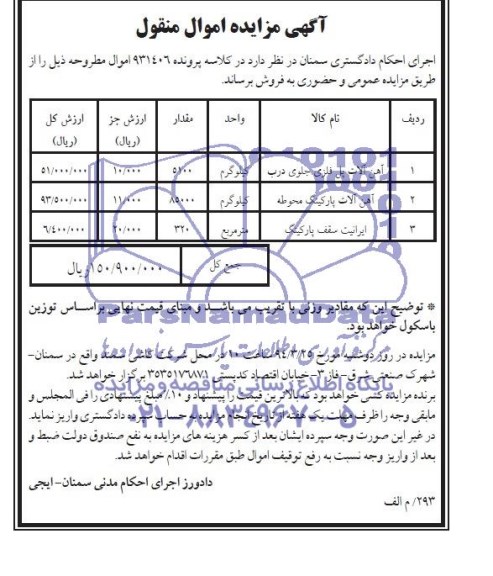 آگهی مزایده اموال منقول
اجرای احکام دادگستری سمنان در نظر دارد در کلاسه پرونده ۹۳۱۴۰۶ اموال مطروحه ذیل را از
طریق مزایده عمومی و حضوری به فروش برساند.
ردیف نام کالا واحد مقدار ارزش جز (ریال) ارزش کل (ریال)
۱ آهن آلات پل فلزی جلوی درب کیلوگرم ۵۱۰۰ ۱۰/۰۰۰ ۵۱/۰۰۰/۰۰۰
۲ آهن آلات پارکینگ محوطه کیلوگرم ۸۵۰۰ ۱۱/۰۰۰ ۹۳/۵۰۰/۰۰۰
۳ ایرانیت سقف پارکینگ مترمربع ۳۲۰ ۲۰/۰۰۰ ۶/۴۰۰/۰۰۰
جمع کل ۱۵۰/۹۰۰/۰۰۰ ریال
* توضیح این که مقادیر وزنی با تقریب می باشند و مبنای قیمت نهایی براساس توزین
باسکول خواهد بود.
مزایده در روز دوشنبه مورخ ۹۴/۳/۲۵ ساعت ۱۰ در محل شرکت کاشی سمند واقع در سمنان-
شهرک صنعتی شرق-فاز۳-خیابان اقتصاد کدپستی ۳۵۳۵۱۷۶۸۷۱ برگزار خواهد شد.
برنده مزایده کسی خواهد بود که بالاترین قیمت را پیشنهاد و ۱۰٪ مبلغ پیشنهادی را فی المجلس و
مابقی وجه را ظرف مهلت یک هفته از تاریخ انجام مزایده به حساب سپرده دادگستری واریز نماید.
در غیر این صورت وجه سپرده ایشان بعد از کسر هزینه های مزایده به نفع صندوق دولت ضبط و
بعد از واریز وجه نسبت به رفع توقیف اموال طبق مقررات اقدام خواهد شد.
دادورز اجرای احکام مدنی سمنان- ایجی
۲۹۳/ م الف
ParsNamadData
پایگاه اطلاع رسانی مناقصه و مزایده
۰۲۱-۸۸۳۴۹۶۷۰-۵